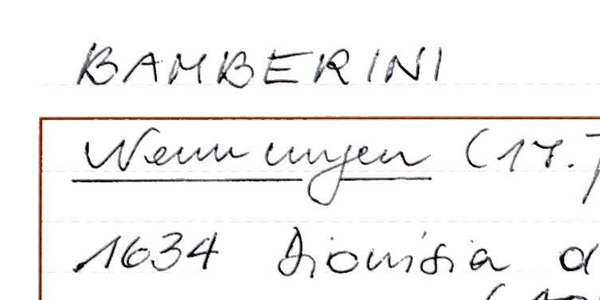 BAMBERINI
Nennungen (17.
1634 Dionisia d